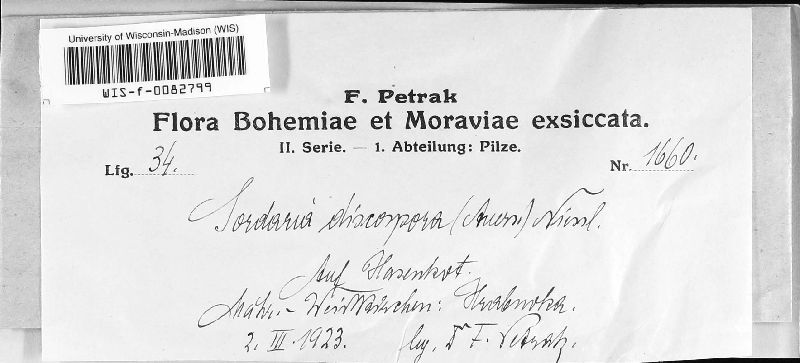 University of Wisconsin-Madison (WIS)
WIS-f-0082799
F. Petrak
Flora Bohemiae et Moraviae exsiccata.
II. Serie. — 1. Abteilung: Pilze.
Lfg. 34. Nr. 1660.
Sordaria discospora (Auersw) Niessl.
Auf Hasenkot.
Mähr.-Weisskirchen: Hrabuvka.
2. III. 1923. leg. Dr F. Petrak.